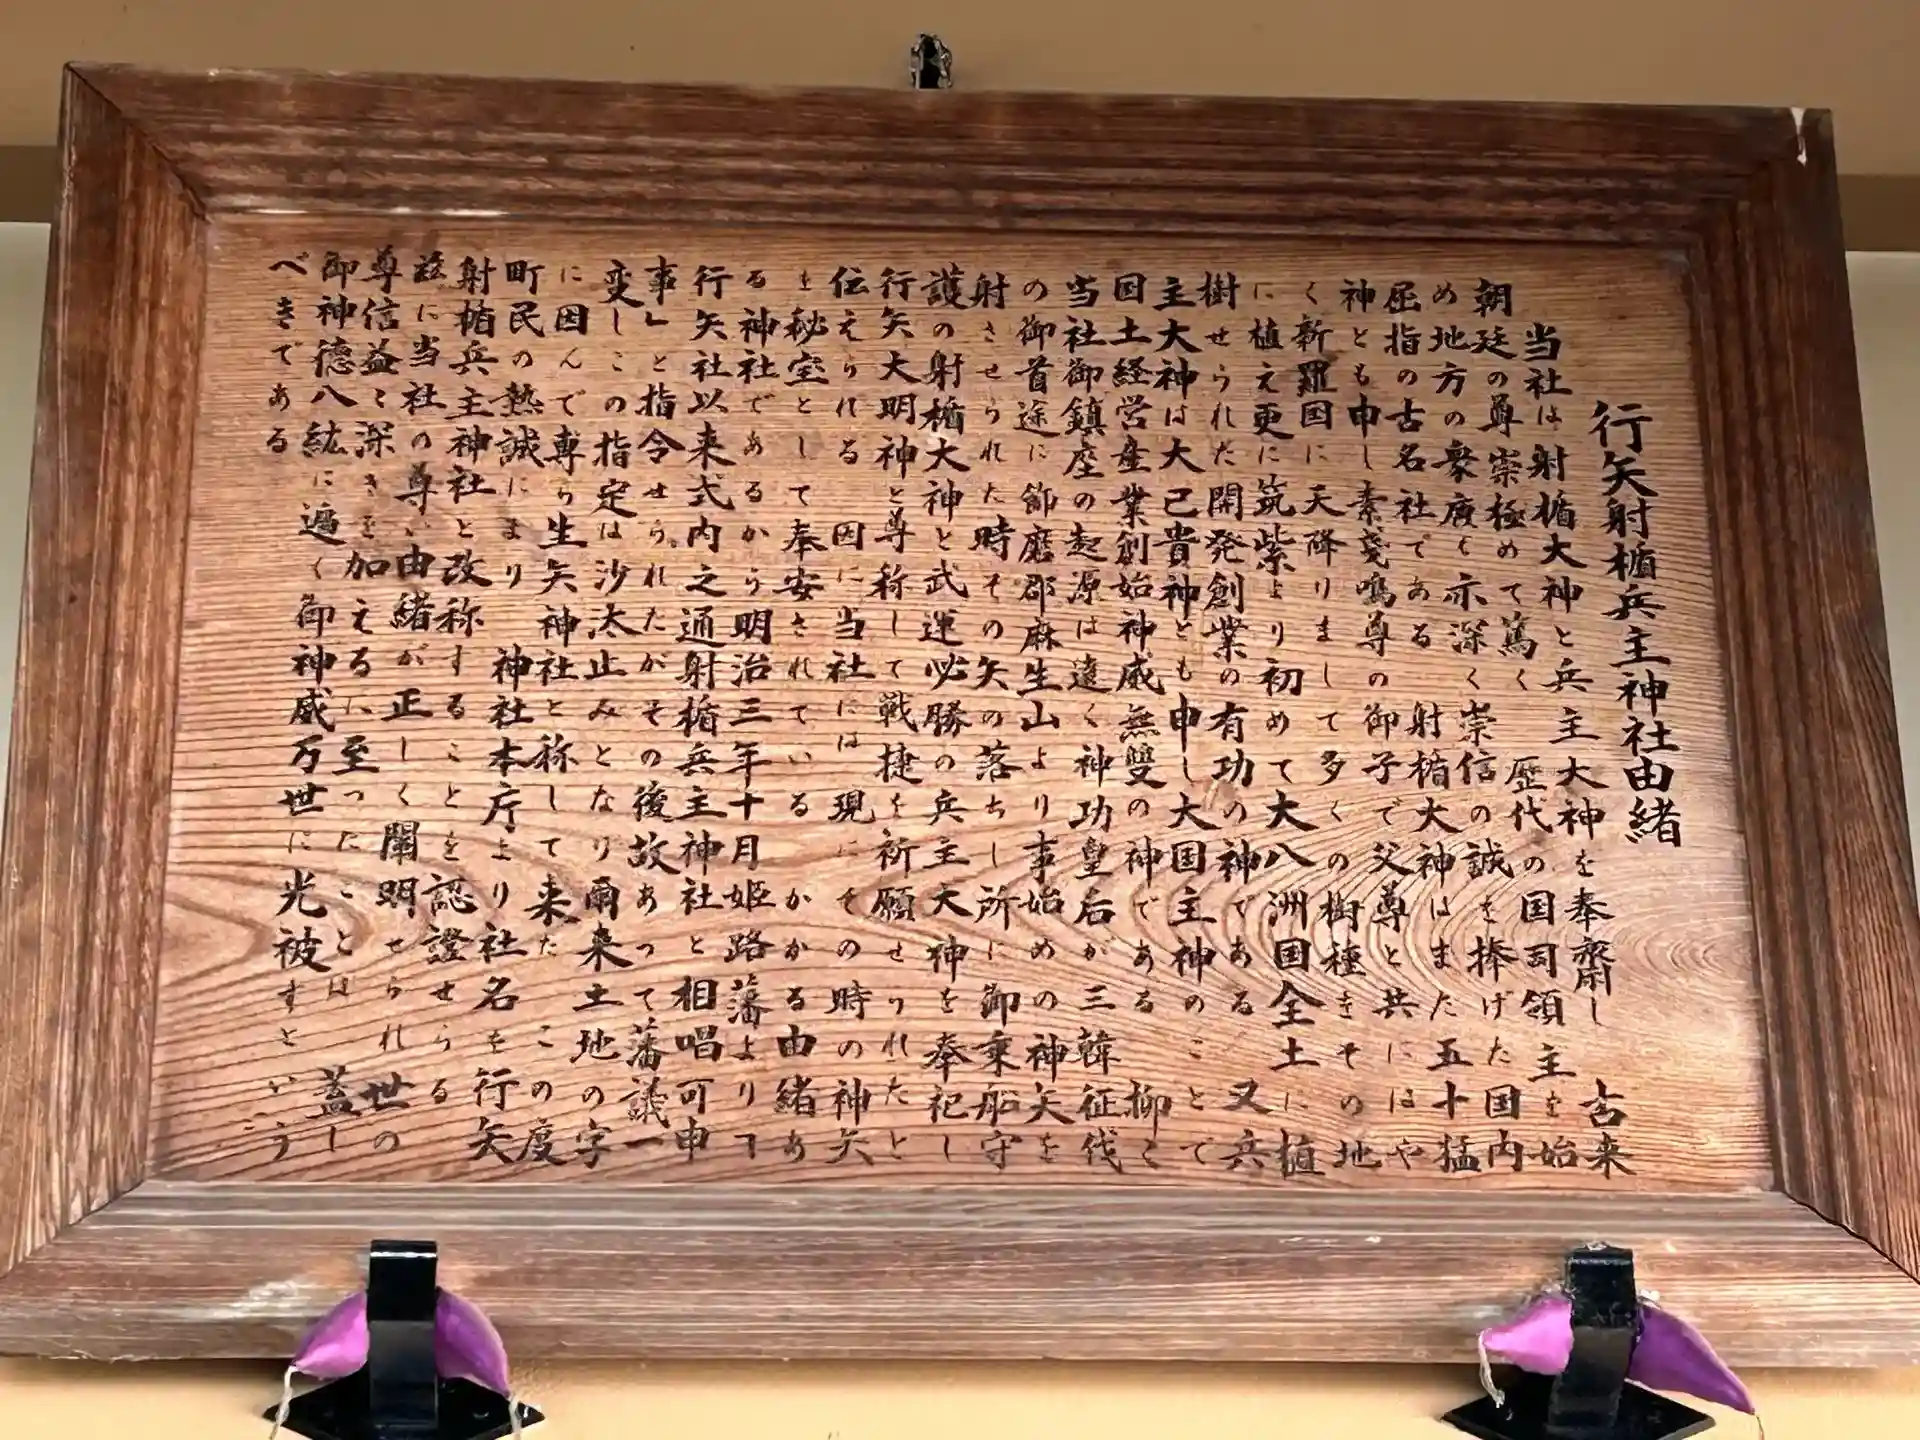 行矢射楯兵主神社由緒
当社は射楯大神と兵主大神を奉齋し 古来
朝廷の尊崇極めて篤く 歴代の国司領主を始
め地方の衆庶も亦深く崇信の誠を捧げた国内
屈指の古名社である 射楯大神はまた五十猛
神とも申し素戔鳴尊の御子で父尊と共にはや
く新羅国に天降りまして多くの樹種をその地
に植え更に筑紫より初めて大八洲国全土に植
樹せられた開発創業の有功の神である 又兵
主大神は大己貴神とも申し大国主神のことで
国土経営産業創始神威無雙の神である 抑〻
当社御鎮座の起源は遠く神功皇后が三韓征伐
の御首途に餝磨郡麻生山より事始めの神矢を
射させられた時その矢の落ちし所に御乗船守
護の射楯大神と武運必勝の兵主大神を奉祀し
行矢大明神と尊称して戦捷を祈願せられたと
伝えられる 因に当社には現にその時の神矢
を秘宝として奉安されている かかる由緒あ
る神社であるから明治三年十月姫路藩より「
行矢社以来式内之通射楯兵主神社と相唱可申
事」と指令せられたがその後故あって藩議一
変しこの指定は沙汰止みとなり爾来土地の字
に因んで専ら生矢神社と称して来た この度
町民の熱誠により 神社本庁より社名を行矢
射楯兵主神社と改称することを認證せらる
茲に当社の尊い由緒が正しく闡明せられ世の
尊信益〻深きを加えるに至ったことは 蓋し
御神德八紘に遍く御神威万世に光被すという
べきである